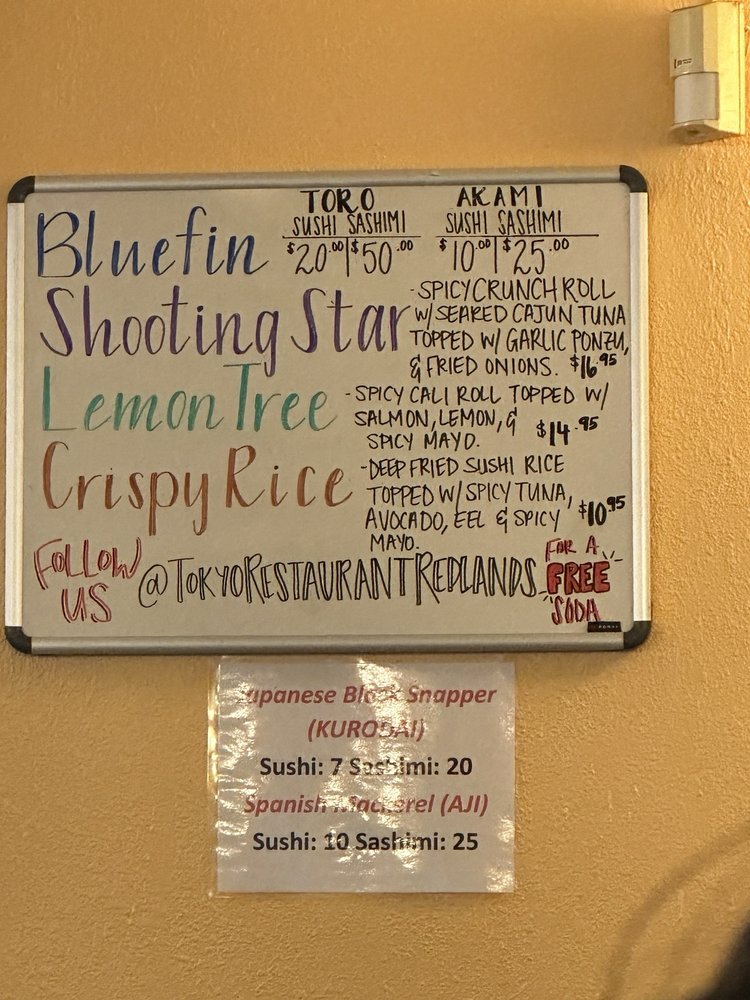 TORO AKAMI
SUSHI SASHIMI SUSHI SASHIMI
Bluefin $20.00 $50.00 $10.00 $25.00
Shooting Star - SPICY CRUNCH ROLL
W/ SEARED CAJUN TUNA
TOPPED W/ GARLIC PONZU,
& FRIED ONIONS. $16.95
Lemon Tree - SPICY CALI ROLL TOPPED W/
SALMON, LEMON, &
SPICY MAYO. $14.95
Crispy Rice - DEEP FRIED SUSHI RICE
TOPPED W/ SPICY TUNA,
AVOCADO, EEL & SPICY $10.95
MAYO.
FOLLOW
US @TOKYORESTAURANTREDLANDS
FOR A
FREE
SODA
Japanese Black Snapper
(KURODAI)
Sushi: 7 Sashimi: 20
Spanish Mackerel (AJI)
Sushi: 10 Sashimi: 25